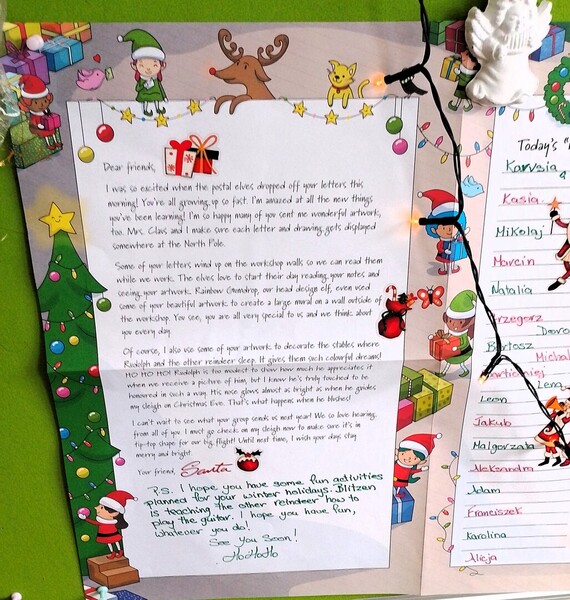 Dear friends,
I was so excited when the postal elves dropped off your letters this
morning! You're all growing up so fast. I'm amazed at all the new things
you've been learning! I'm so happy many of you sent me wonderful artwork,
too. Mrs. Claus and I make sure each letter and drawing gets displayed
somewhere at the North Pole.
Some of your letters wind up on the workshop walls so we can read them
while we work. The elves love to start their day reading your notes and
seeing your artwork. Rainbow Gumdrop, our head design elf, even used
some of your beautiful artwork to create a large mural on a wall outside of
the workshop. You see, you are all very special to us and we think about
you every day.
Of course, I also use some of your artwork to decorate the stables where
Rudolph and the other reindeer sleep. It gives them such colourful dreams!
HO HO HO! Rudolph is too modest to show how much he appreciates it
when we receive a picture of him, but I know he's truly touched to be
honoured in such a way. His nose glows almost as bright as when he guides
my sleigh on Christmas Eve. That's what happens when he blushes!
I can't wait to see what your group sends us next year! We so love hearing
from all of you. I must go check on my sleigh now to make sure it's in
tip-top shape for our big flight! Until next time, I wish your days stay
merry and bright.
Your friend, Santa
P.S. I hope you have some fun activities
planned for your winter holidays. Blitzen
is teaching the other reindeer how to
play the guitar. I hope you have fun,
whatever you do!
See you soon!
HoHoHo
Today's "
Kasia
Mikołaj
Marcin
Natalia
Grzegorz
Bartosz
Michal
Lena
Leon
Jakub
Małgorzata
Aleksandra
Adam
Franciszek
Karolina
Alicja